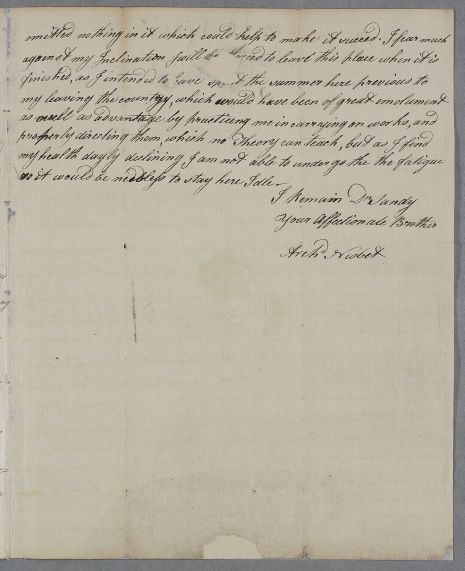 omitted nothing in it which could help to make it succeed. I fear much
against my Inclination I will be forced to leave this place when it is
finished, as I intended to have spent the summer here previous to
my leaving the country, which would have been of great emolument
as well as advantage by practicing me in carrying on works, and
properly directing them, which no Theory can teach, but as I find
my health dayly declining I am not able to undergo the the fatigue
so it would be needless to stay here Idle.
I Remain Dr Sandy
Your Affectionate Brother
Archd Nisbet